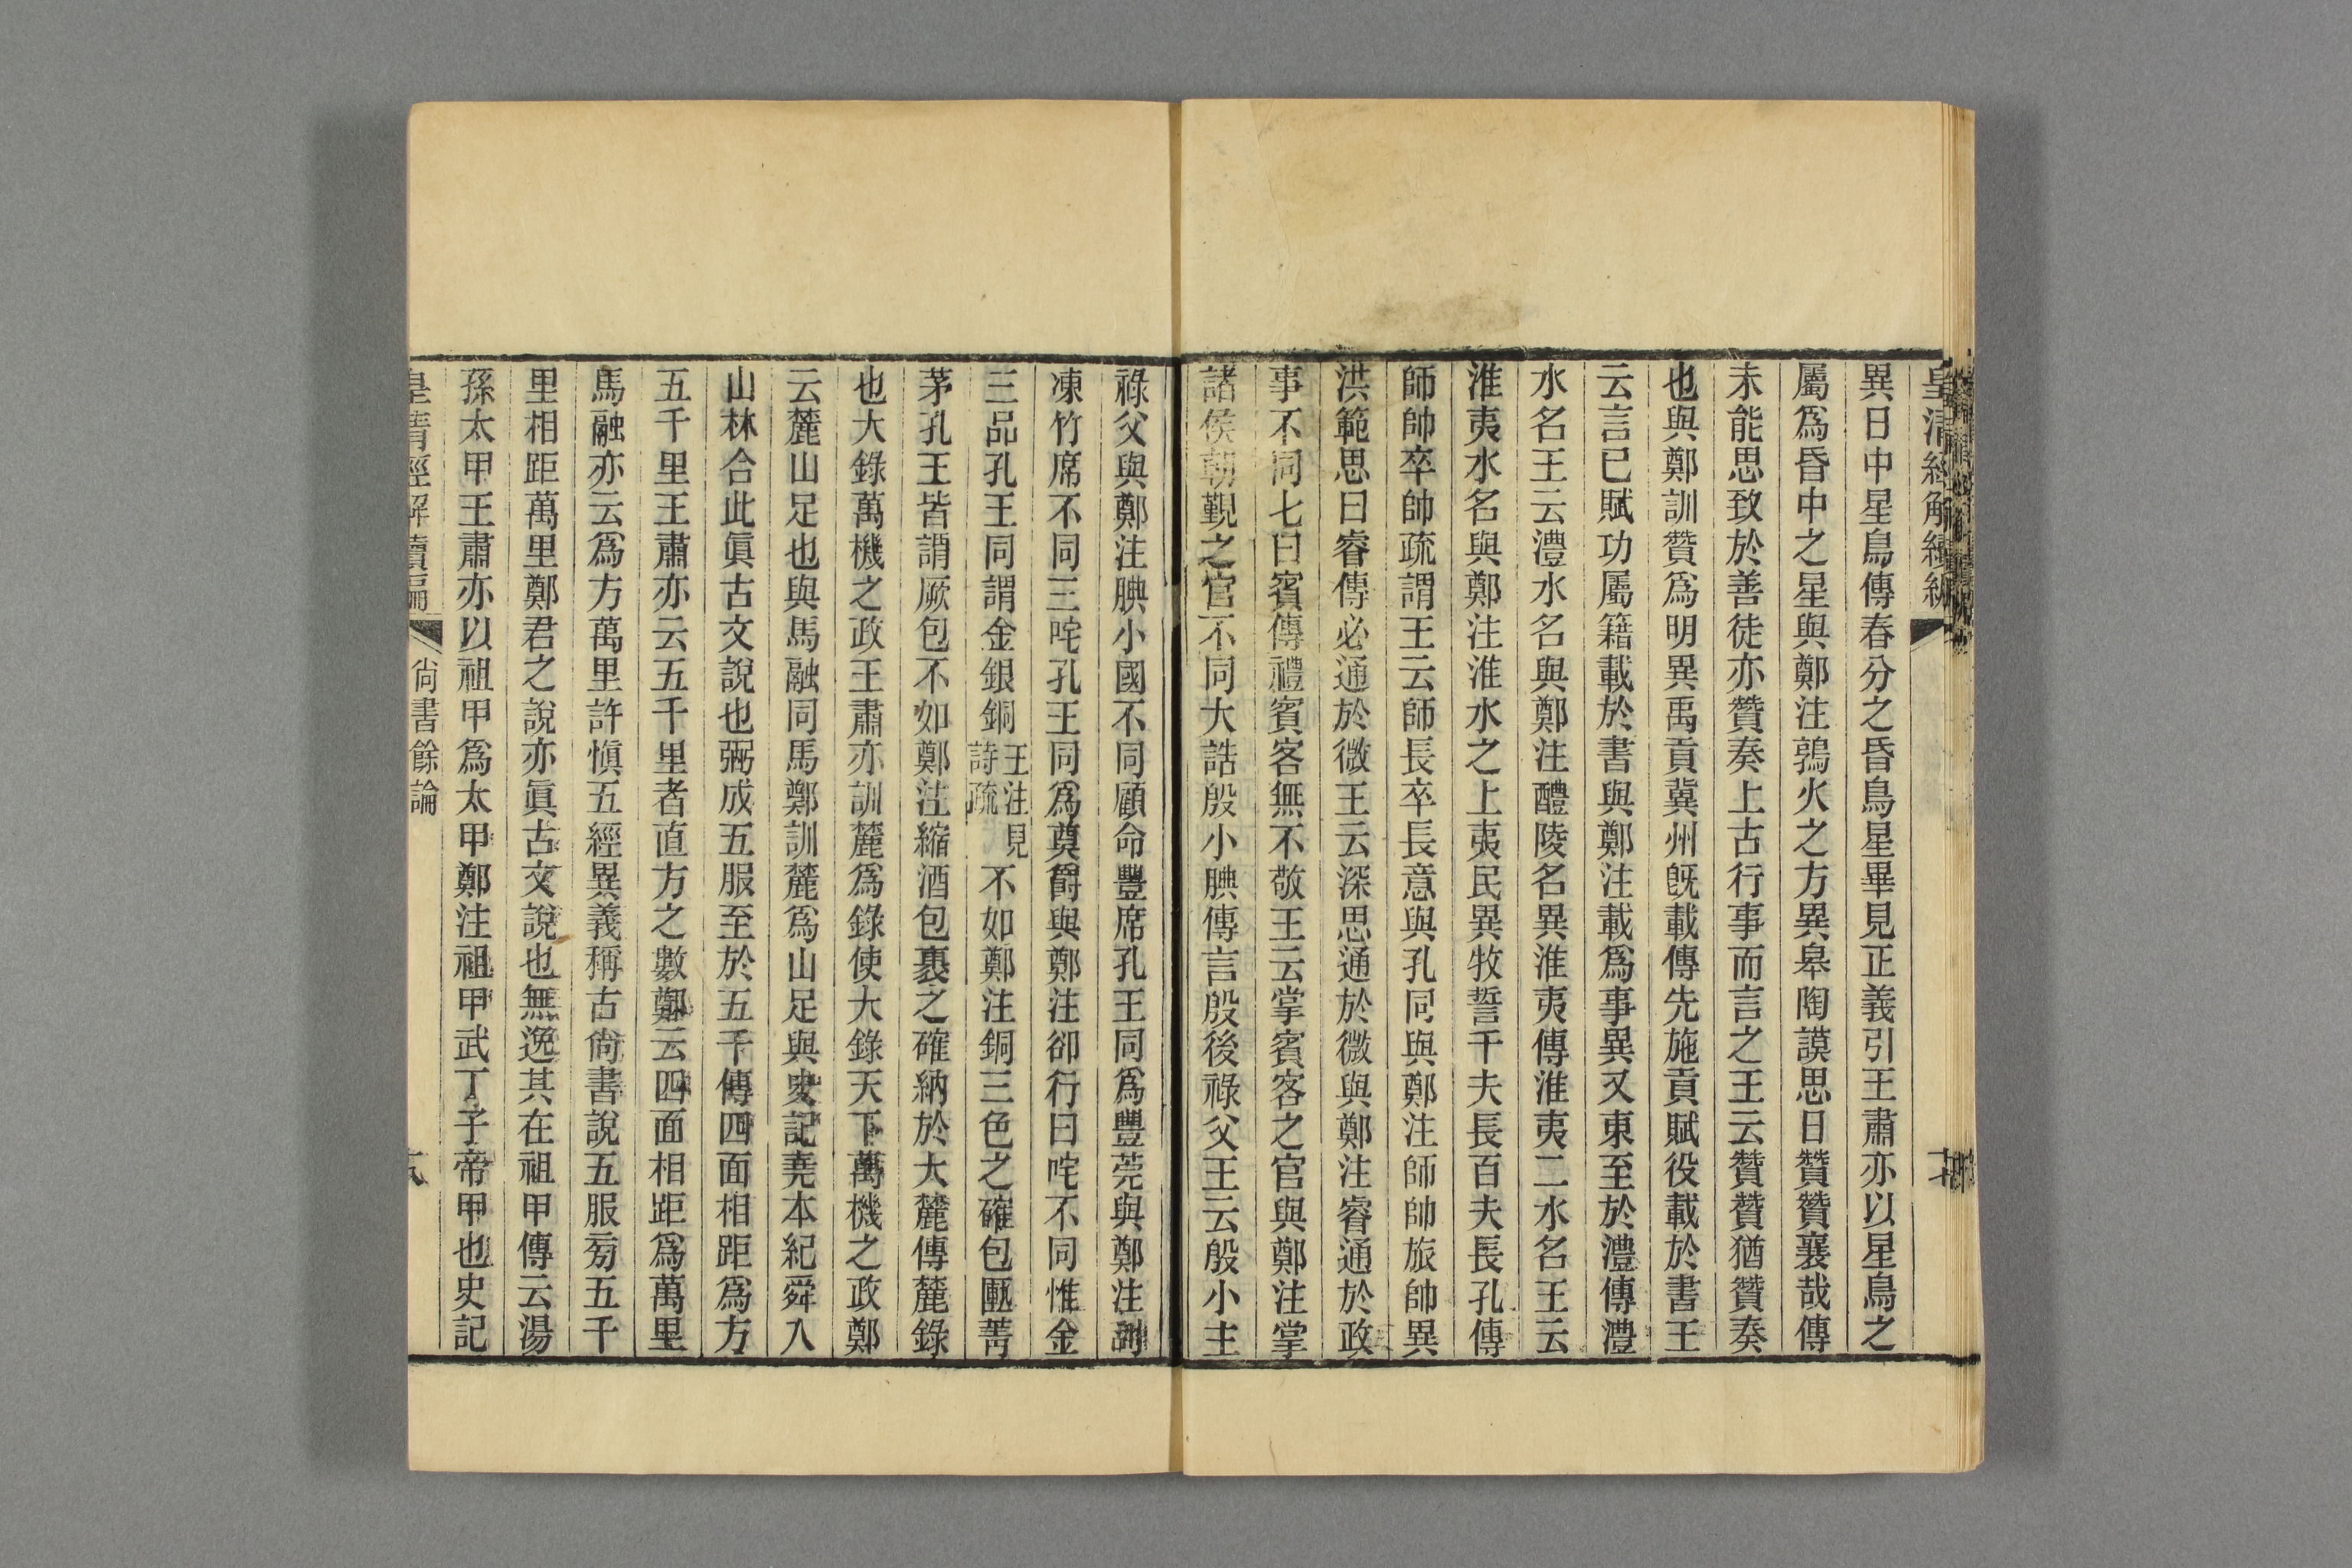 皇清經解續編
十七
異日中星鳥傳春分之昏鳥星畢見正義引王肅亦以星鳥之
屬爲昏中之星與鄭注鶉火之方異皋陶謨思日贊贊襄哉傳
未能思致於善徒亦贊奏上古行事而言之王云贊贊猶贊奏
也與鄭訓贊爲明異禹貢冀州旣載傳先施貢賦役載於書王
云言已賦功屬籍載於書與鄭注載爲事異又東至於澧傳澧
水名王云澧水名與鄭注醴陵名異淮夷傳淮夷二水名王云
淮夷水名與鄭注淮水之上夷民異牧誓千夫長百夫長孔傳
師帥卒帥疏謂王云師長卒長意與孔同與鄭注師帥旅帥異
洪範思曰睿傳必通於微王云深思通於微與鄭注睿通於政
事不同七曰賓傳禮賓客無不敬王云掌賓客之官與鄭注掌
諸侯朝覲之官不同大誥殷小腆傳言殷後祿父王云殷小主
祿父與鄭注腆小國不同顧命豐席孔王同爲豐莞與鄭注刮
凍竹席不同三咤孔王同爲奠爵與鄭注卻行曰咤不同惟金
三品孔王同謂金銀銅王注見詩疏不如鄭注銅三色之確包匭菁
茅孔王皆謂厥包不如鄭注縮酒包裹之確納於大麓傳麓錄
也大錄萬機之政王肅亦訓麓爲錄使大錄天下萬機之政鄭
云麓山足也與馬融同馬鄭訓麓爲山足與史記堯本紀舜入
山林合此眞古文說也弼成五服至於五千傳四面相距爲方
五千里王肅亦云五千里者直方之數鄭云四面相距爲萬里
馬融亦云爲方萬里許愼五經異義稱古尙書說五服旁五千
里相距萬里鄭君之說亦眞古文說也無逸其在祖甲傳云湯
孫太甲王肅亦以祖甲爲太甲鄭注祖甲武丁子帝甲也史記
皇清經解續編
尙書餘論
十八